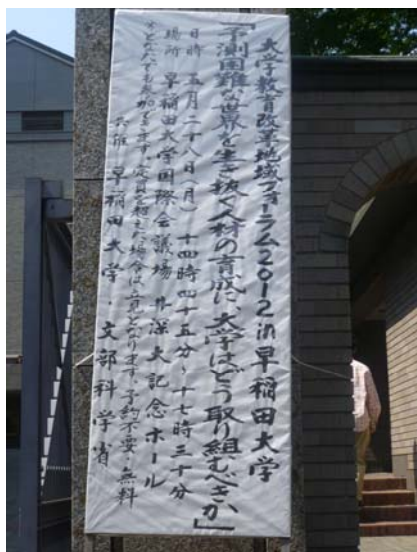 大学教育改革地域フォーラム2012in早稲田大学
「予測困難な世界を生き抜く人材の育成に、大学はどう取り組むべきか」
日時 五月二十八日(月) 十四時四十五分〜十七時三十分
場所 早稲田大学国際会議場 井深大記念ホール
※どなたでも参加できます。定員を超えた場合は、立見となります。予約不要・無料
共催 早稲田大学・文部科学省